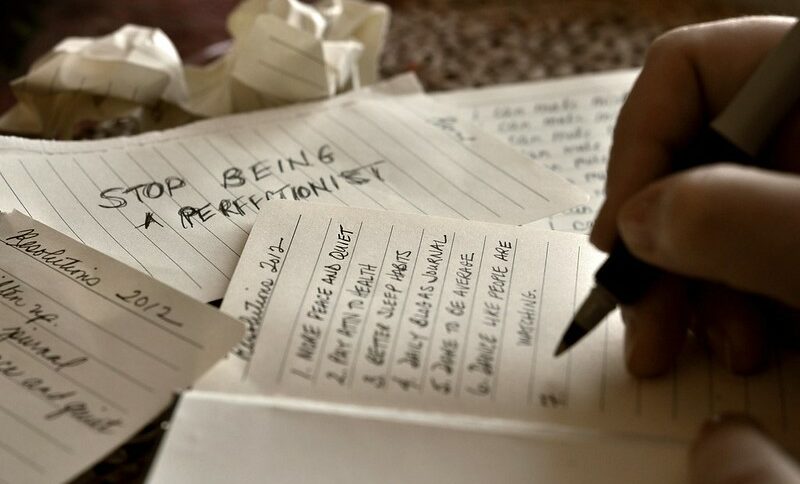 STOP BEING
A PERFETIONIST
I can make mis
can make mi
can make
Resolutions 2012
up.
journal
and quiet
Resolutions 2012
1. MORE PEACE AND QUIET
2. PAY ATTN TO HEALTH
3 BETTER SLEEP HABITS
4 DAILY BLOG AS JOURNAL
5 DARE TO BE AVERAGE
6. DANCE LIKE PEOPLE ARE
WATCHING.
7.